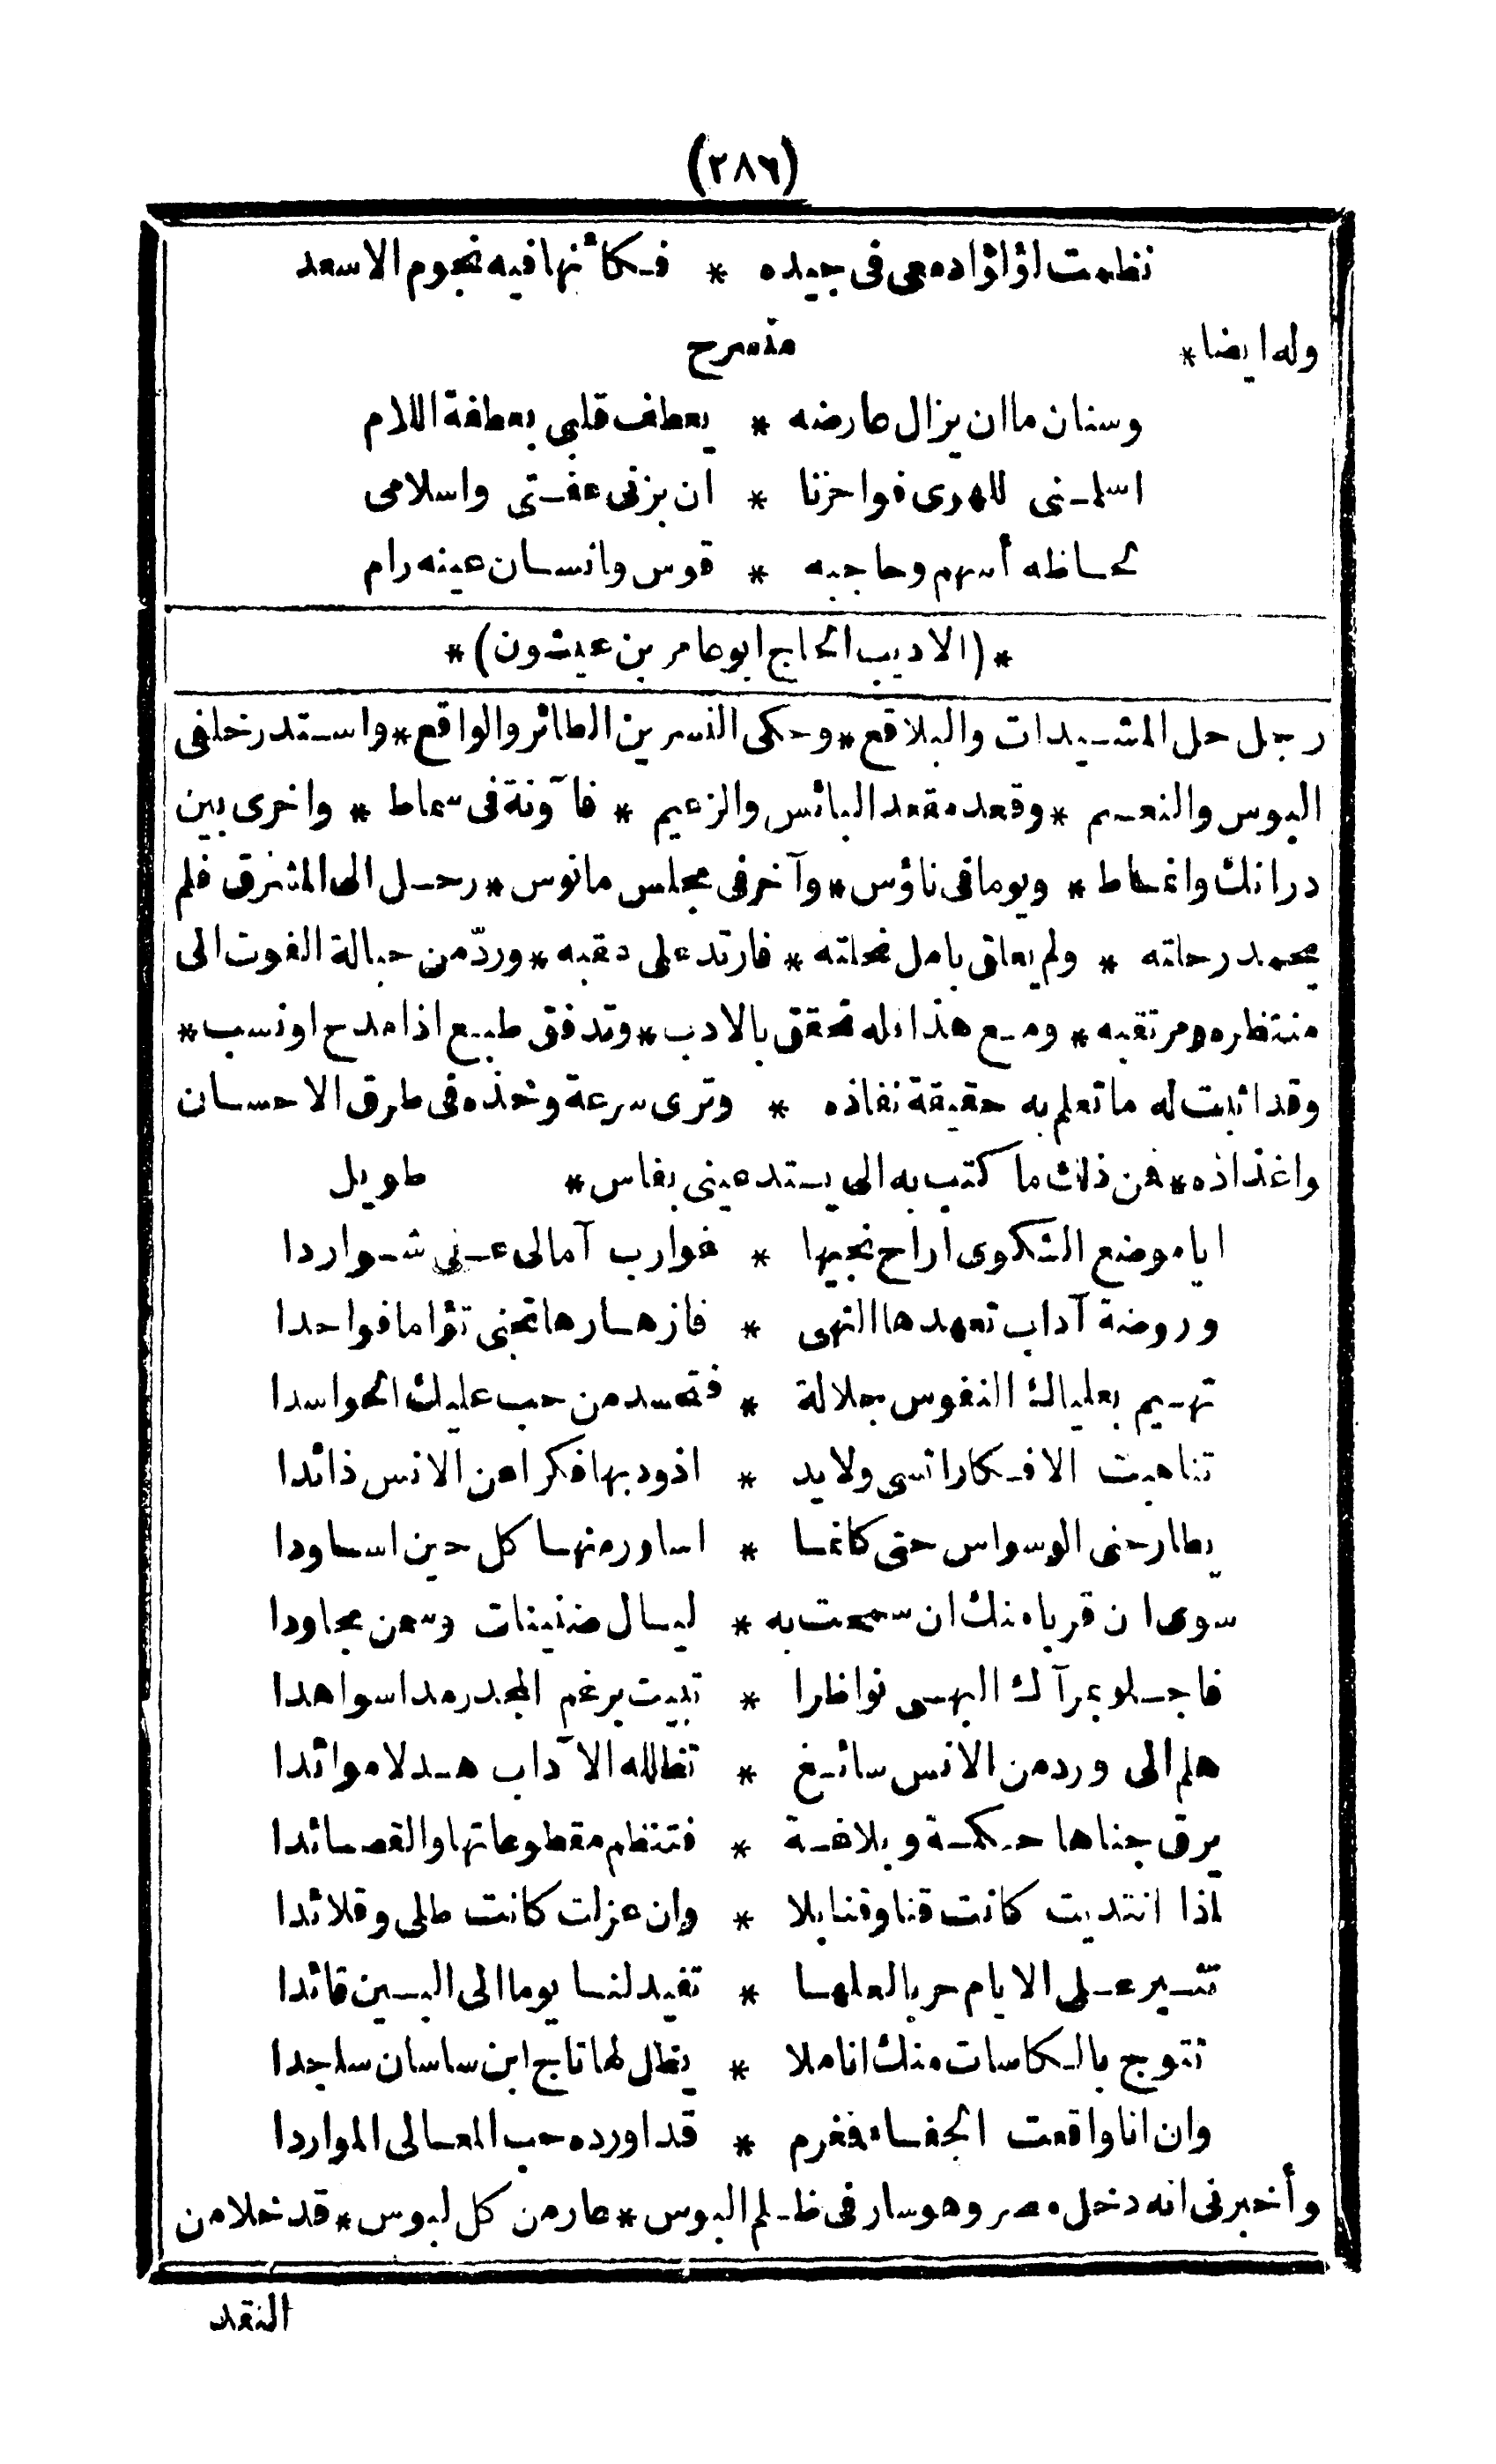 (٢٨٦)
نظمت لؤلؤا دمعي في جيده * فكأنها فيه نجوم الاسعد
وله ايضا * منسرح
وسنان ما ان يزال عارضه * يعطف قلبي بعطفة اللام
اسلمني للهوى فواحزنا * ان بزني عفتي واسلامي
لحاظه أسهم وحاجبه * قوس وانسان عينه رام
*(الاديب الحاج ابو عامر بن عيشون)*
رجل حل المشيدات والبلاقع * وحكى النسرين الطائر والواقع * واستدر خلفي
البوس والنعيم * وقعد مقعد البائس والزعيم * فآونة في سماط * واخرى بين
درانك وانماط * ويوما في ناؤس * وآخر في مجلس مانوس * رحل الى المشرق فلم
يحمد رحلته * ولم يعلق بامل نحلته * فارتد على عقبه * وردّ من حبالة الفوت الى
منتظره ومرتقبه * ومع هذا فله تحقق بالادب * وتدفق طبع اذا مدح او نسب *
وقد اثبت له ما تعلم به حقيقة نفاذه * وترى سرعة وخذه في طرق الاحسان
واغذاذه * فمن ذلك ما كتب به الي يستدعيني بفاس * طويل
ايا موضع الشكوى اراح نجيها * غوارب آمالي عني شواردا
وروضة آداب تعهدها النهى * فازهارها تجنى تؤاما فواحدا
تهيم بعلياك النفوس جلالة * فتحسد من حب عليك الحواسدا
تناهبت الافكار انسي ولا يد * اذود بها فكرا عن الانس ذائدا
يطارحني الوسواس حتى كانما * اساور منها كل حين اساودا
سوى ان قربا منك ان سمحت به * ليال ضنينات وسعن مجاودا
فاجلو بمرآك البهي نواظرا * تبيت برغم المجد رمدا سواهدا
هلم الى ورد من الانس سائغ * تظل له الآداب هدلا موائدا
يرق جناها حكمة وبلاغة * فتنظم مقطوعاتها والقصائدا
اذا انتديت كانت قنا وقنابلا * وان عزلت كانت طلى وقلائدا
تثير على الايام حربا لعلها * تفيد لنا يوما الى البين قائدا
تتوج بالكاسات منك اناملا * يظل لها تاج ابن ساسان ساجدا
وان انا واقعت الجفاء فمغرم * قد اورده حب المعالي المواردا
وأخبرني انه دخل مصر وهو سار في ظلم البوس * عار من كل لبوس * قد خلا من
النقد